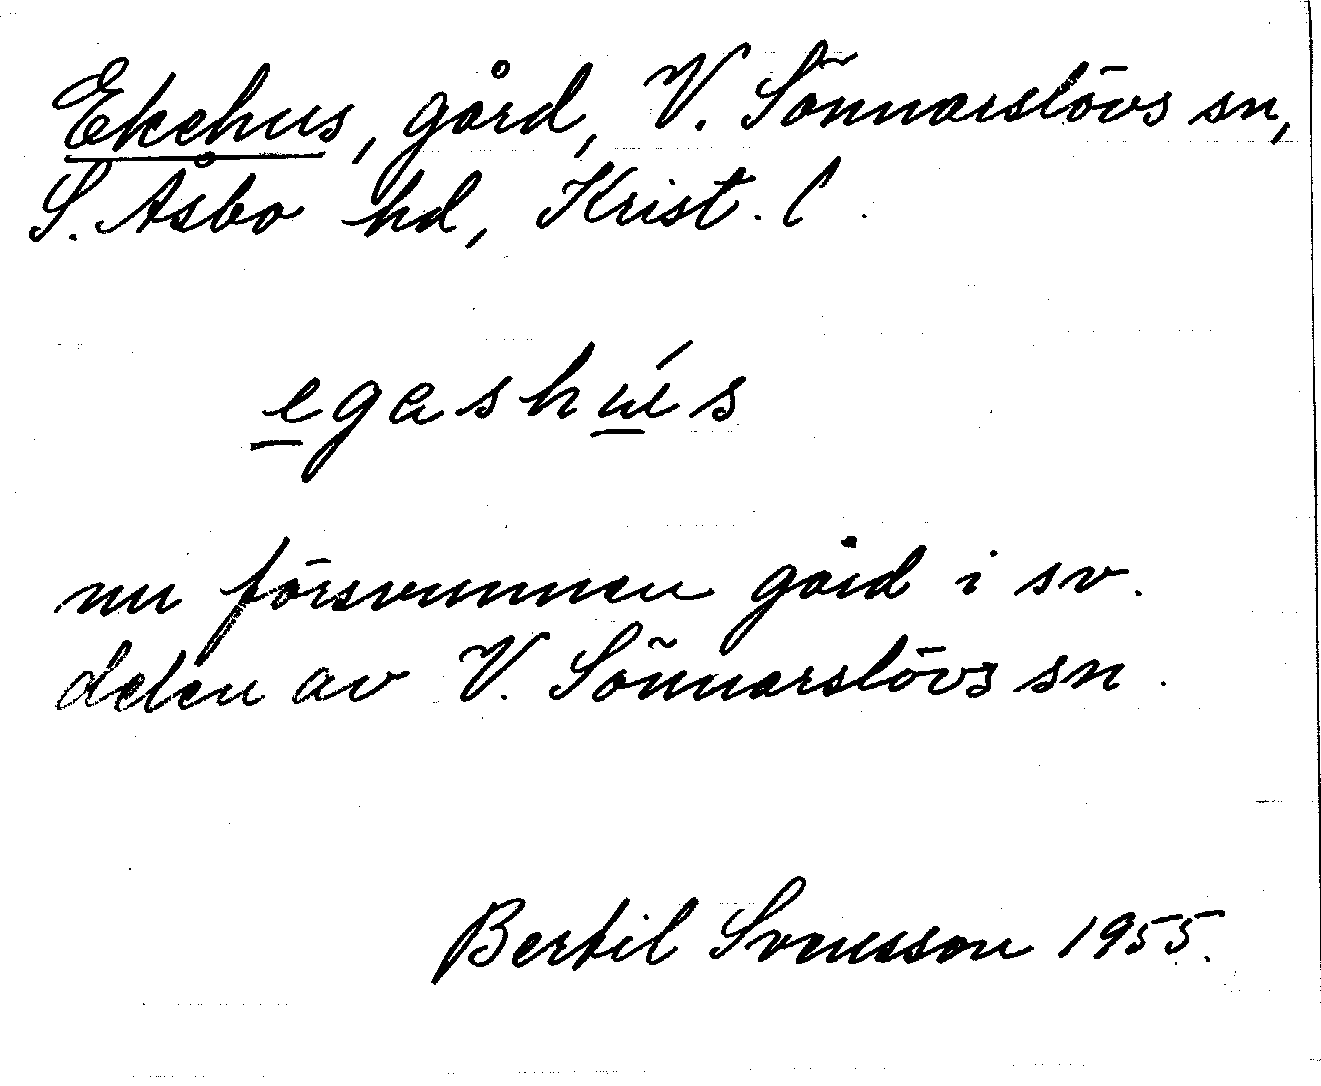 Ekehus, gård, V. Sönnarslövs sn,
S. Åsbo hd, Krist. l.
egashús
nu försvunnen gård i sv.
delen av V. Sönnarslövs sn.
Bertil Svensson 1955.